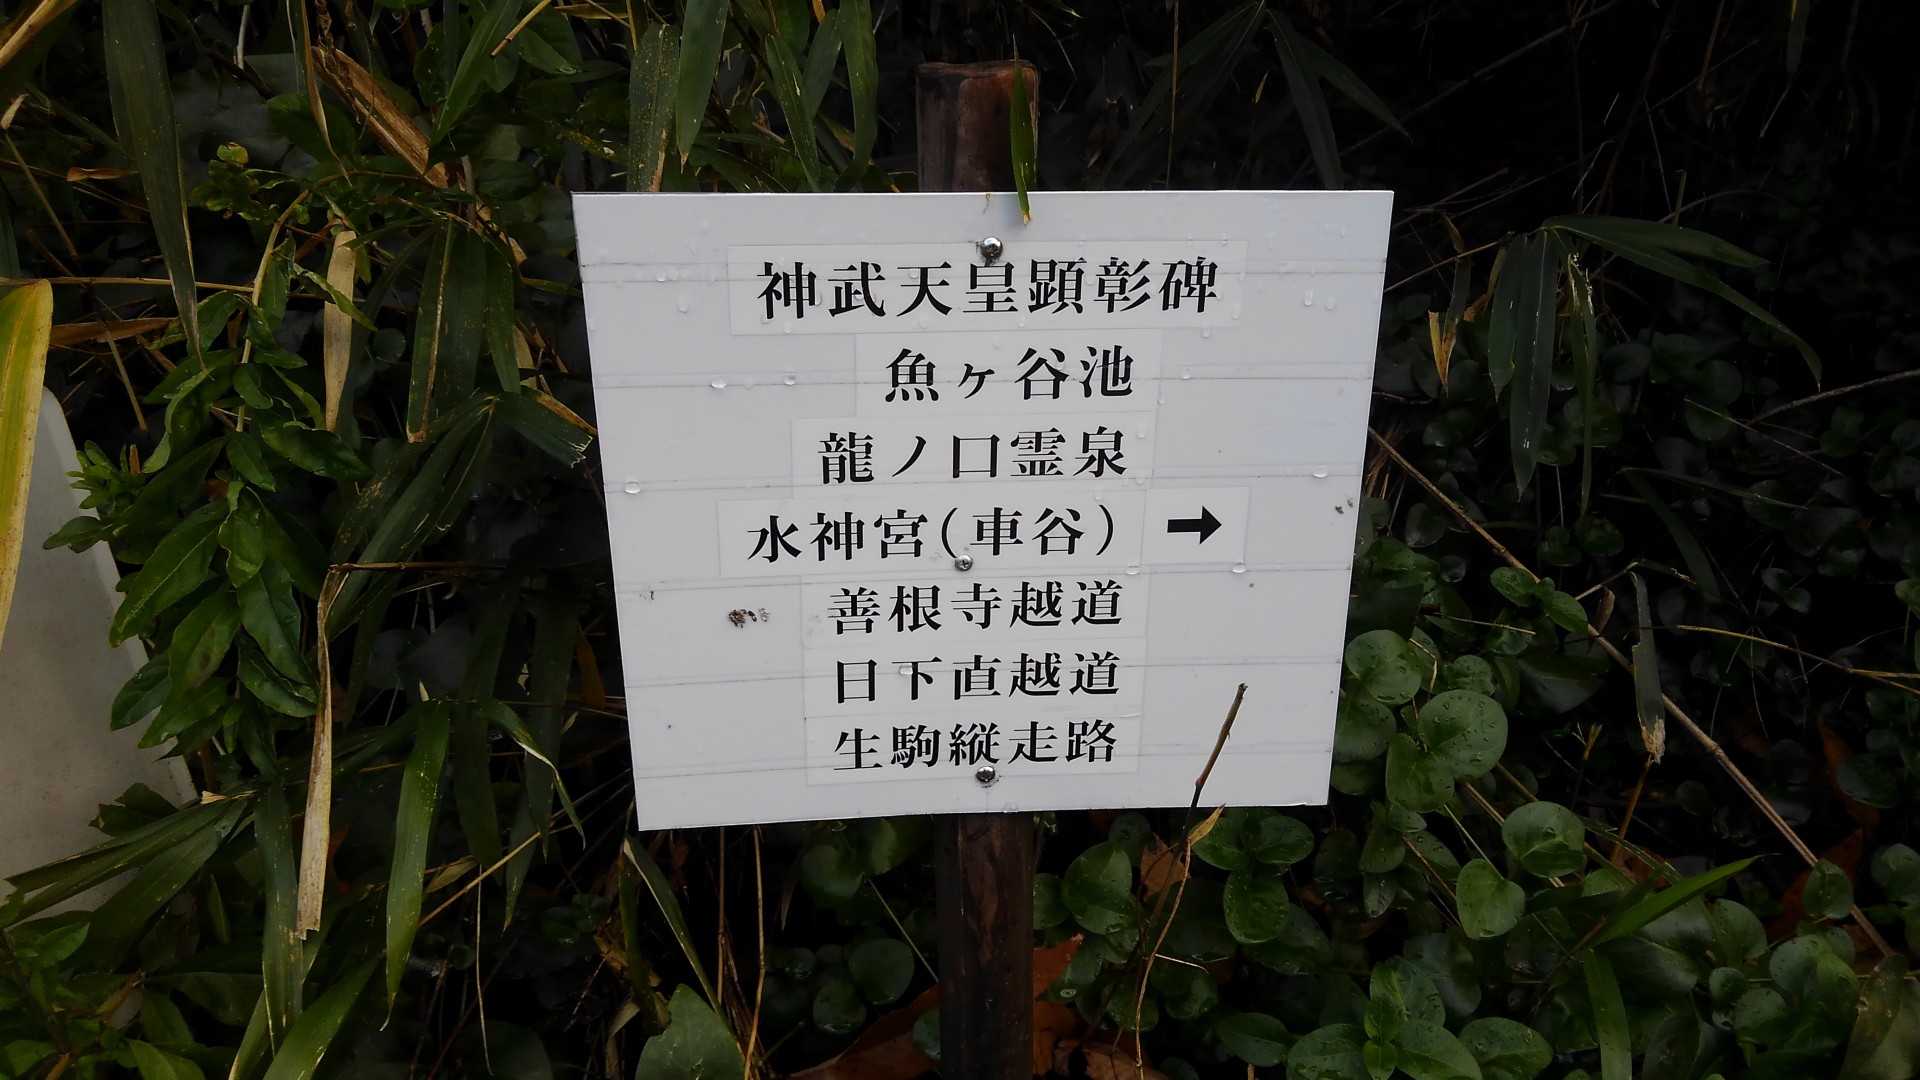 神武天皇顕彰碑
魚ヶ谷池
龍ノ口霊泉
水神宮(車谷) →
善根寺越道
日下直越道
生駒縦走路